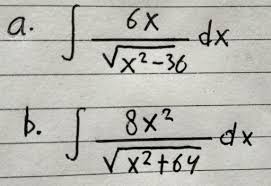 a. ∫ 6x / √(x²-36) dx
b. ∫ 8x² / √(x²+64) dx